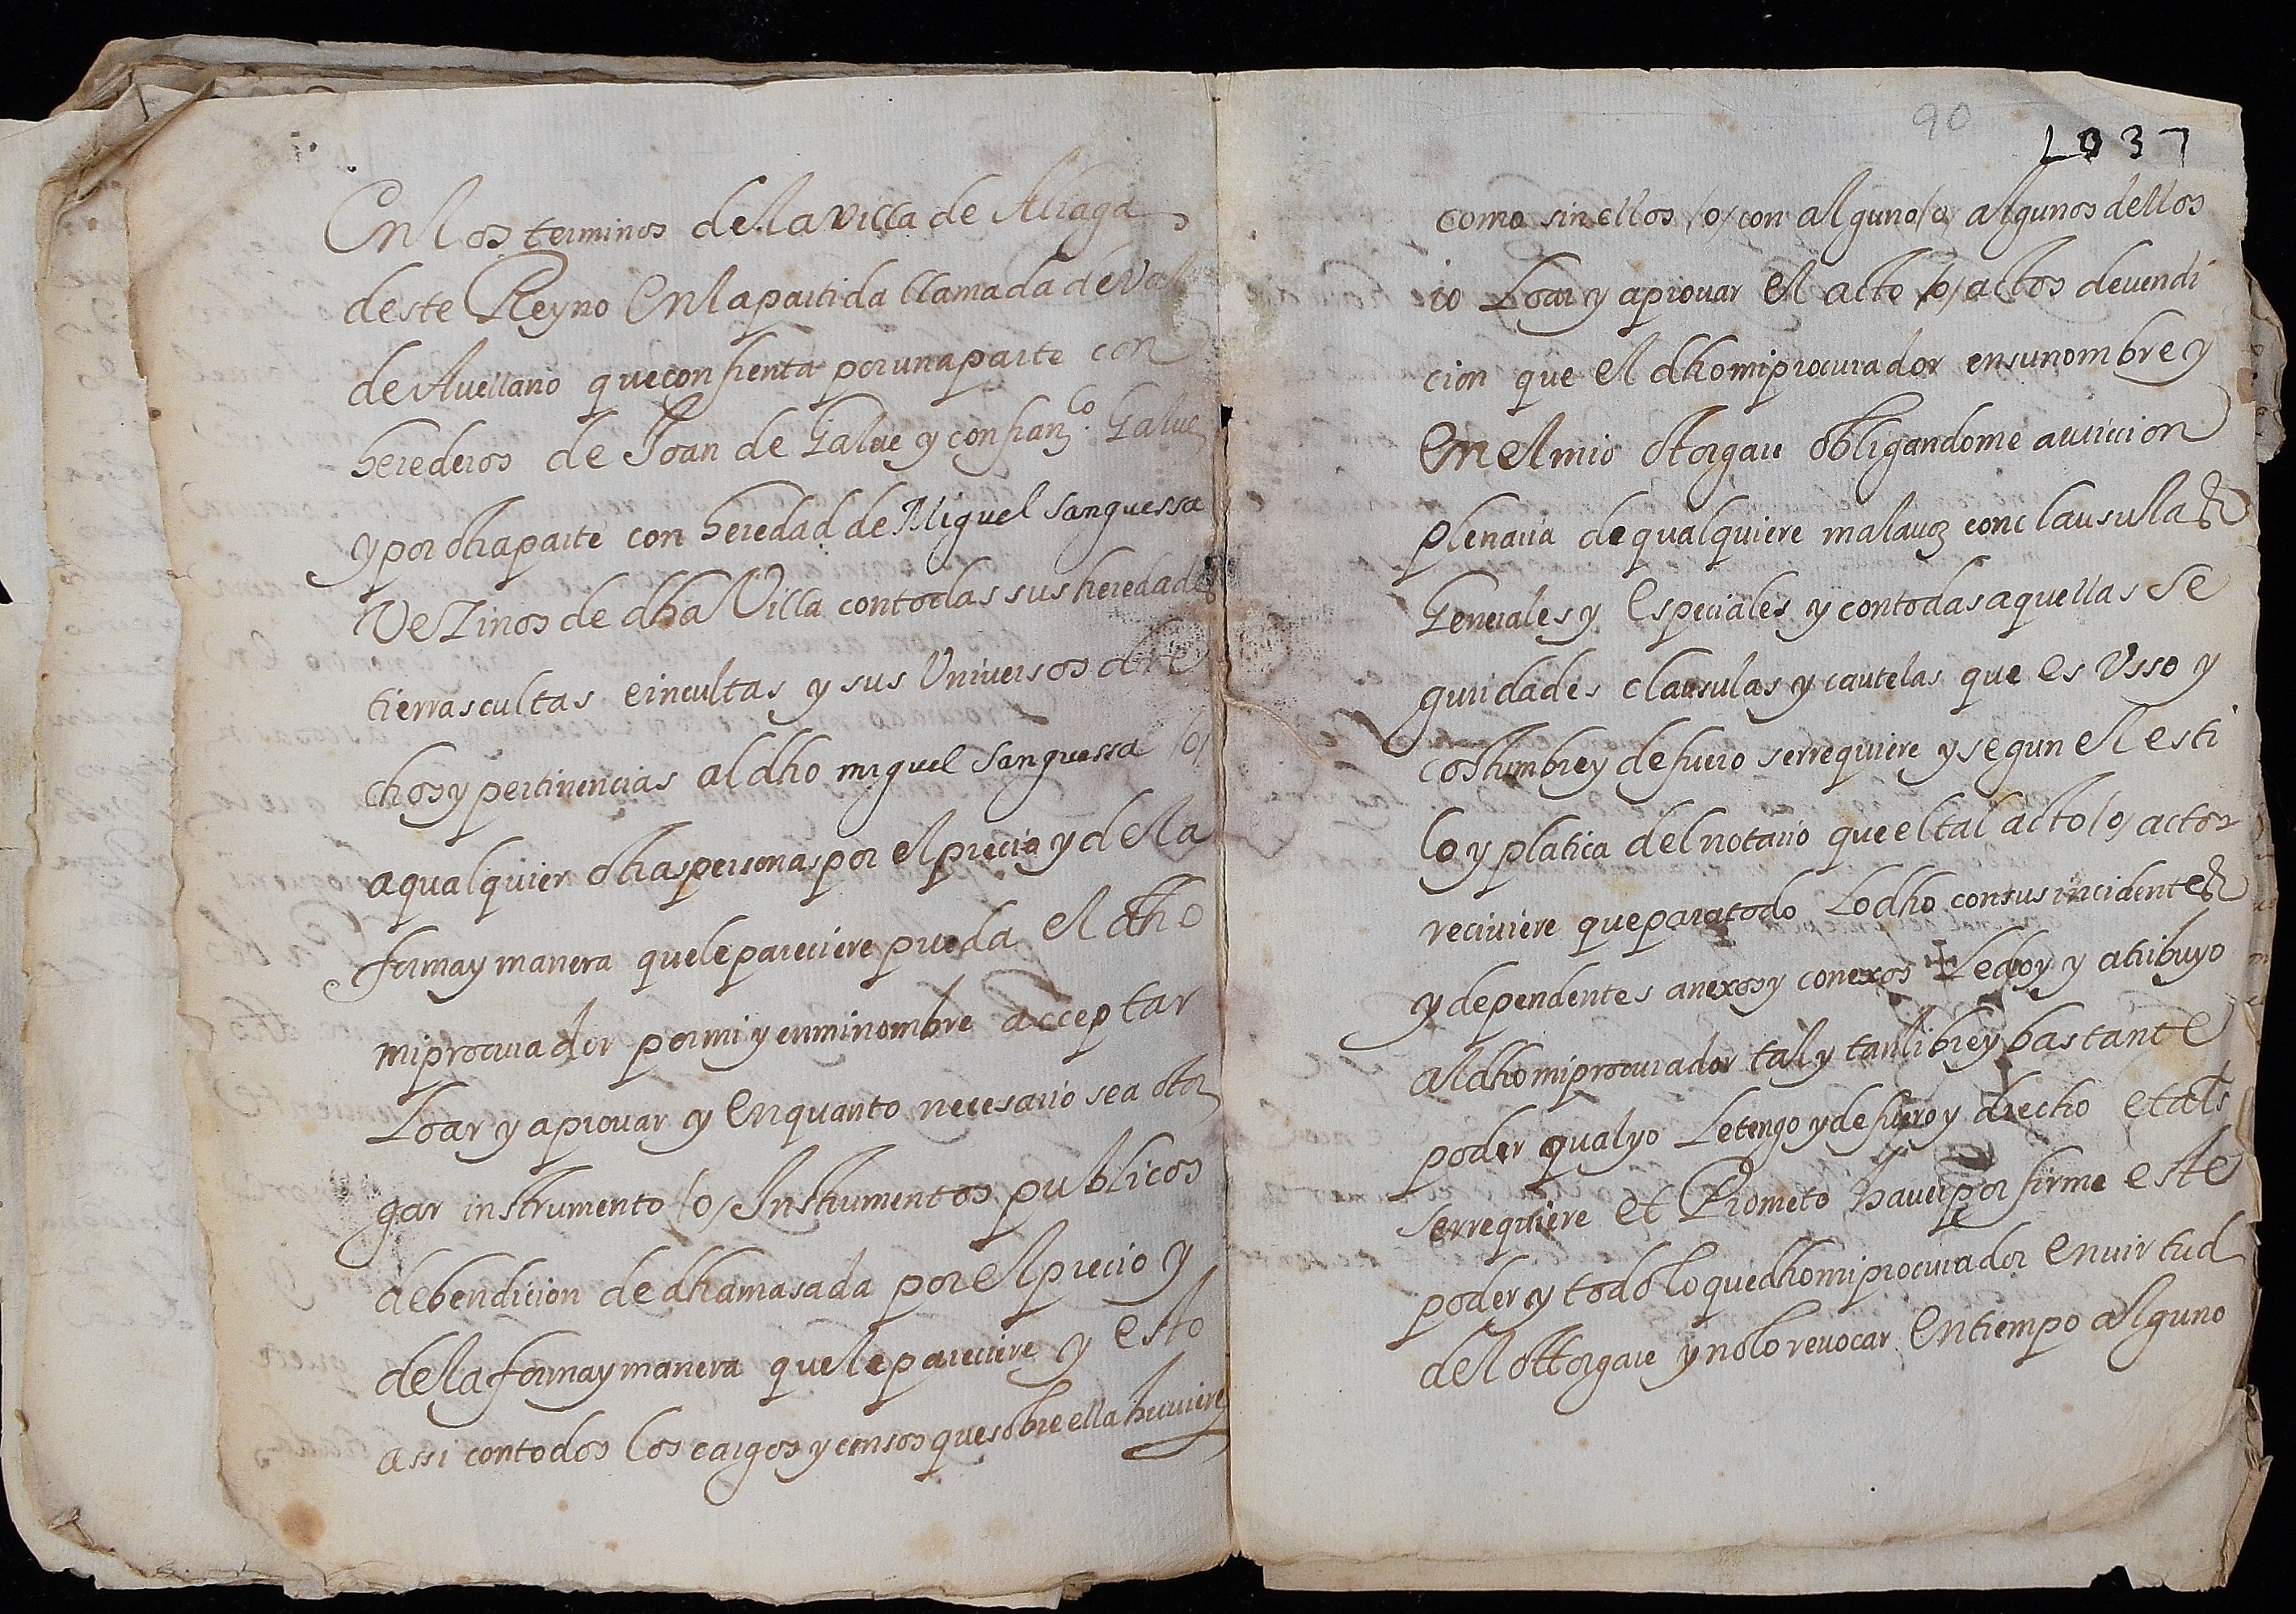 En los terminos de la villa de Aliaga
deste Reyno En la partida llamada de Val
de Avellano que confrenta por una parte con
herederos de Joan de Galve y con fran.co Galve
y por otra parte con heredad de Miguel sanguessa
Vezinos de dha Villa con todas sus heredades
tierras cultas e incultas y sus Universos dre
chos y pertinencias al dho miguel sanguessa /o/
a qualquier otras personas por el precio y de la
forma y manera que le pareciere pueda el dho
mi procurador por mi y en mi nombre acceptar
Loar y aprovar y En quanto necesario sea otor
gar instrumento /o/ Instrumentos publicos
de bendicion de dha masada por el precio y
de la forma y manera que le pareciere y esto
assi con todos los cargos y censos que sobre ella huviere
90
1037
como sin ellos /o/ con alguno /o/ algunos dellos
io Loar y aprovar el acto /o/ actos de vendi
cion que el dho mi procurador en su nombre y
En el mio otorgare obligandome a eviccion
plenaria de qualquiere mala voz con clausulas
Generales y Especiales y con todas aquellas se
guridades clausulas y cautelas que es Usso y
costumbre y de fuero se rrequiere y segun el esti
lo y platica del notario que el tal acto /o/ actos
reciviere que para todo Lo dho con sus incidentes
y dependentes anexos y conexos Le doy y atribuyo
al dho mi procurador tal y tan libre y bastante
poder qual yo Le tengo y de fuero y drecho et als
se rrequiere et Prometo haver por firme este
poder y todo lo que dho mi procurador En virtud
del ottorgare y no lo revocar En tiempo alguno